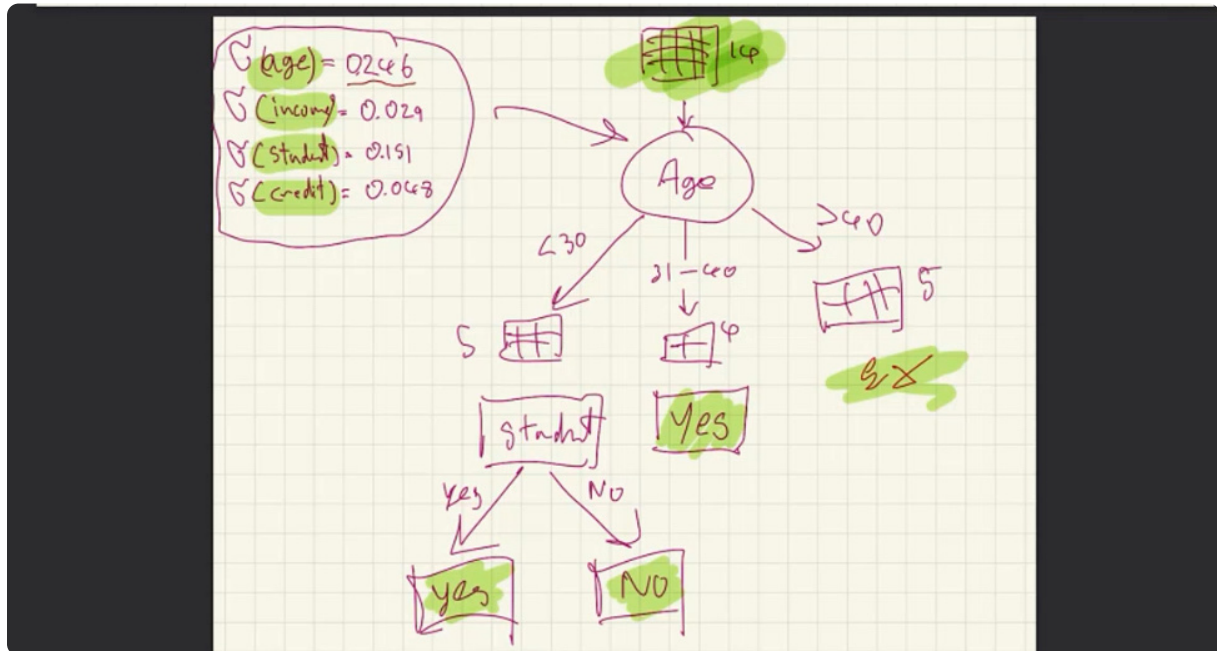 G(age) = 0.246
G(income) = 0.029
G(student) = 0.151
G(credit) = 0.048
14
Age
<30
31-40
>40
5
4
5
student
Yes
yes
No
yes
NO